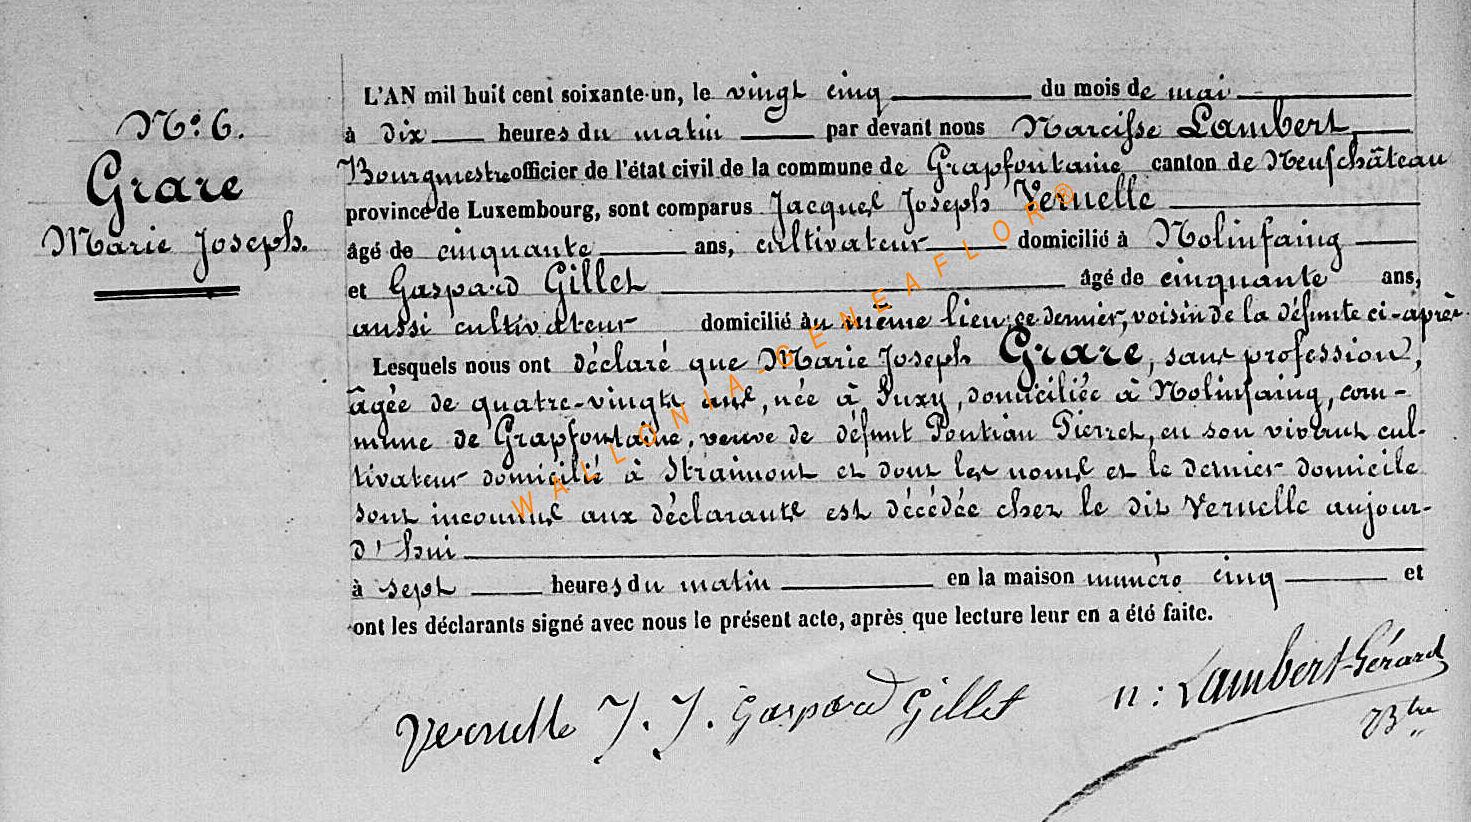 N.º 6.
Grare
Marie Joseph.
L'AN mil huit cent soixante-un, le vingt cinq du mois de mai
à dix heures du matin par devant nous Narcisse Lambert,
Bourgmestre officier de l'état civil de la commune de Grapfontaine canton de Neufchâteau
province de Luxembourg, sont comparus Jacques Joseph Vernelle
âgé de cinquante ans, cultivateur domicilié à Nolinfaing
et Gaspard Gillet âgé de cinquante ans,
aussi cultivateur domicilié au même lieu, ce dernier, voisin de la défunte ci-après
Lesquels nous ont déclaré que Marie Joseph Grare, sans profession,
âgée de quatre-vingts ans, née à Suxy, domiciliée à Nolinfaing, com-
mune de Grapfontaine, veuve de défunt Pontian Pierret, en son vivant cul-
tivateur domicilié à Straimont et dont les noms et le dernier domicile
sont inconnus aux déclarants est décédée chez le dit Vernelle aujour-
d'hui
à sept heures du matin en la maison numéro cinq et
ont les déclarants signé avec nous le présent acte, après que lecture leur en a été faite.
Vernelle J. J. Gaspard Gillet n : Lambert-Gérard
Btre
WALLONIA-GENEAFLOR®